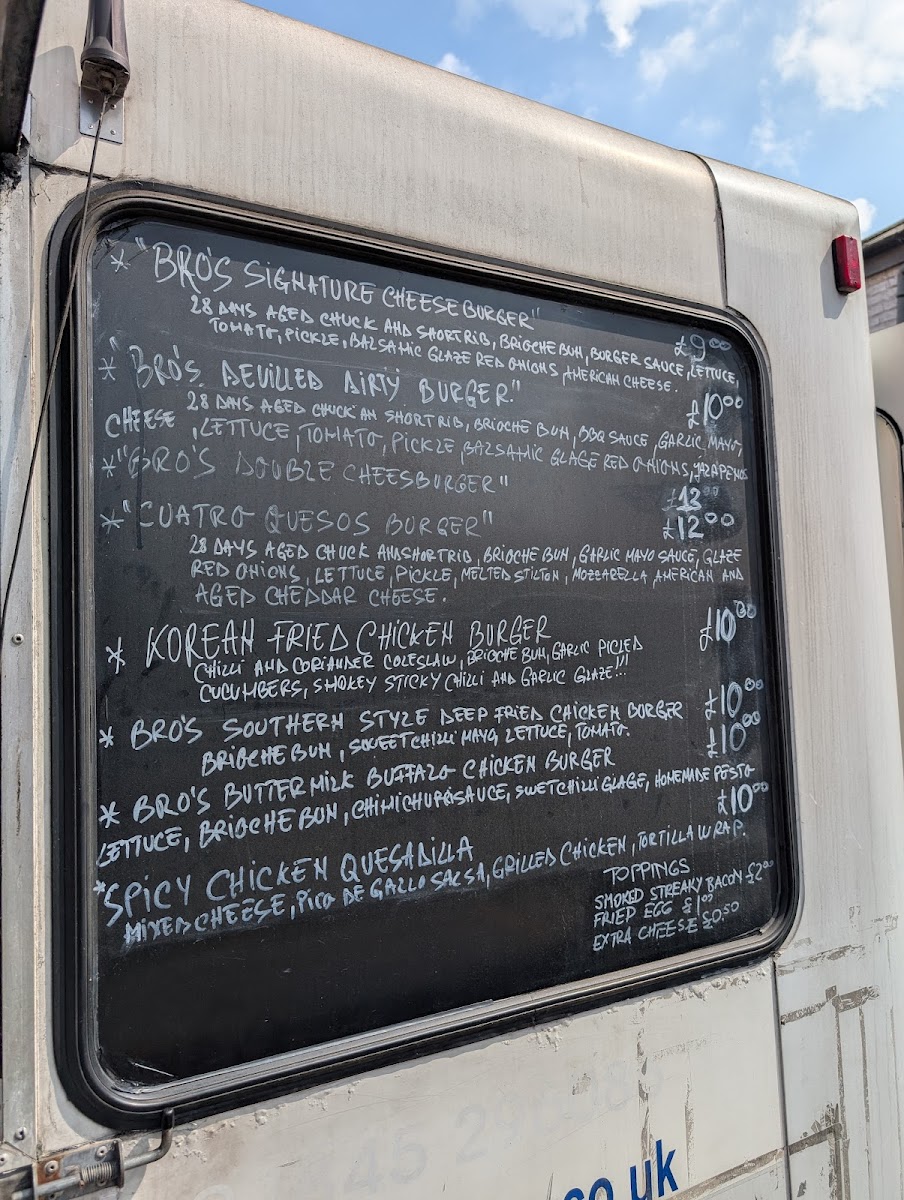 * "BRO'S SIGNATURE CHEESEBURGER"
28 DAYS AGED CHUCK AND SHORTRIB, BRIOCHE BUN, BURGER SAUCE, LETTUCE,
£9⁰⁰
TOMATO, PICKLE, BALSAMIC GLAZE RED ONIONS AMERICAN CHEESE.
* "BRO'S. DEVILLED DIRTY BURGER."
£10⁰⁰
28 DAYS AGED CHUCK AN SHORTRIB, BRIOCHE BUN, BBQ SAUCE, GARLIC, MAYO,
CHEESE ,LETTUCE, TOMATO, PICKLE BALSAMIC GLAGE RED ONIONS,
* "BRO'S DOUBLE CHEESBURGER"
£13⁰⁰
* "CUATRO QUESOS BURGER"
£12⁰⁰
28 DAYS AGED CHUCK ANDSHORTRIB, BRIOCHE BUN, GARLIC MAYO SAUCE, GLAZE
RED ONIONS, LETTUCE, PICKLE, MELTED STILTON, MOZZARELLA AMERICAN AND
AGED CHEDDAR CHEESE.
* KOREAN FRIED CHICKEN BURGER
£10⁰⁰
CHILLI AND CORIANDER COLESLAW, BRIOCHE BUN, GARLIC PICLED
CUCUMBERS, SMOKEY STICKY CHILLI AND GARLIC GLAZE!!!
* BRO'S SOUTHERN STYLE DEEP FRIED CHICKEN BURGER
£10⁰⁰
BRIOCHE BUN, SWEETCHILLI MAYO, LETTUCE, TOMATO.
* BRO'S BUTTERMILK BUFFALO CHICKEN BURGER
£10⁰⁰
LETTUCE, BRIOCHE BUN, SWETCHILLI GLAGE, HOMEMADE PESTO
*SPICY CHICKEN QUESADILLA
£10⁰⁰
MIXED CHEESE, PICO DE GALLO SALSA, GRILLED CHICKEN, TORTILLA WRAP.
TOPPINGS
SMOKED STREAKY BACON £2⁰⁰
FRIED EGG £1⁰⁰
EXTRA CHEESE £0.50
co.uk